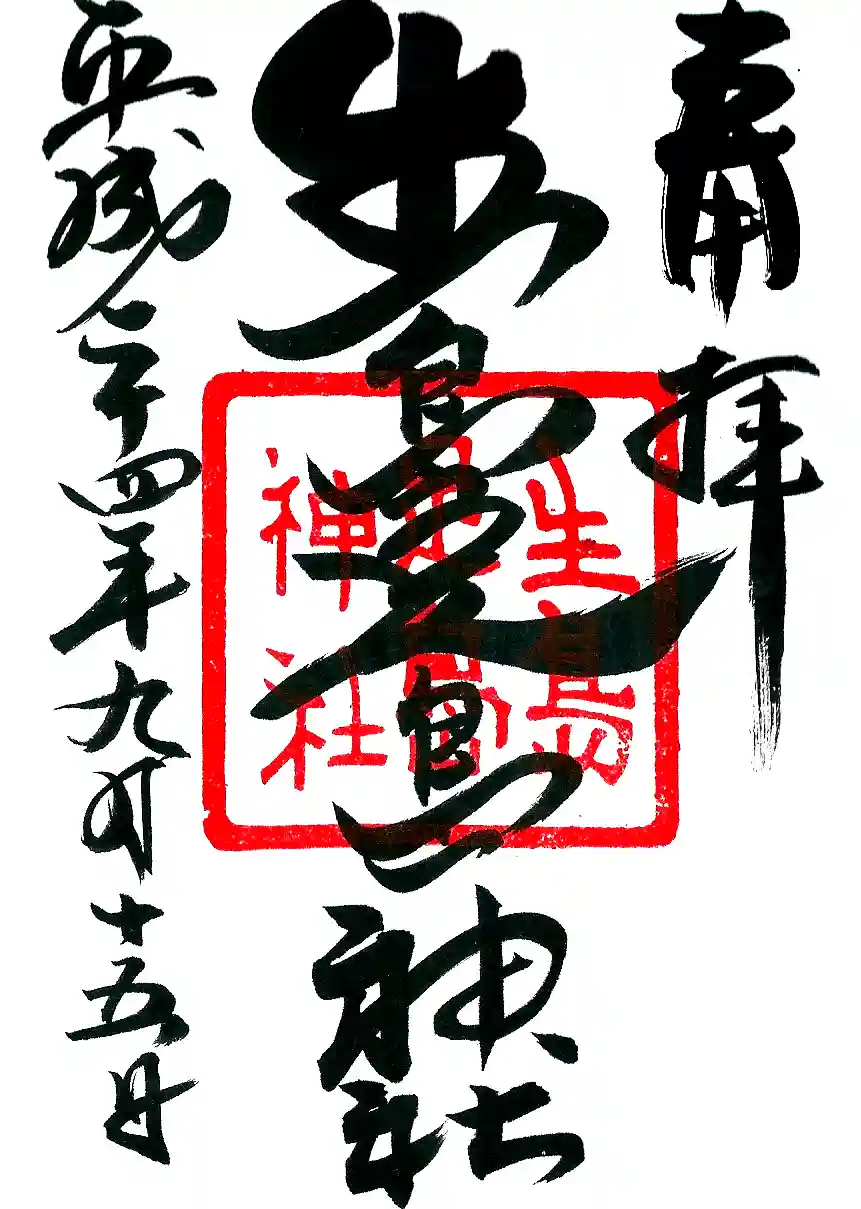 肅拝
生島足島神社
平成二十四年九月十五日
生島
足島
神社